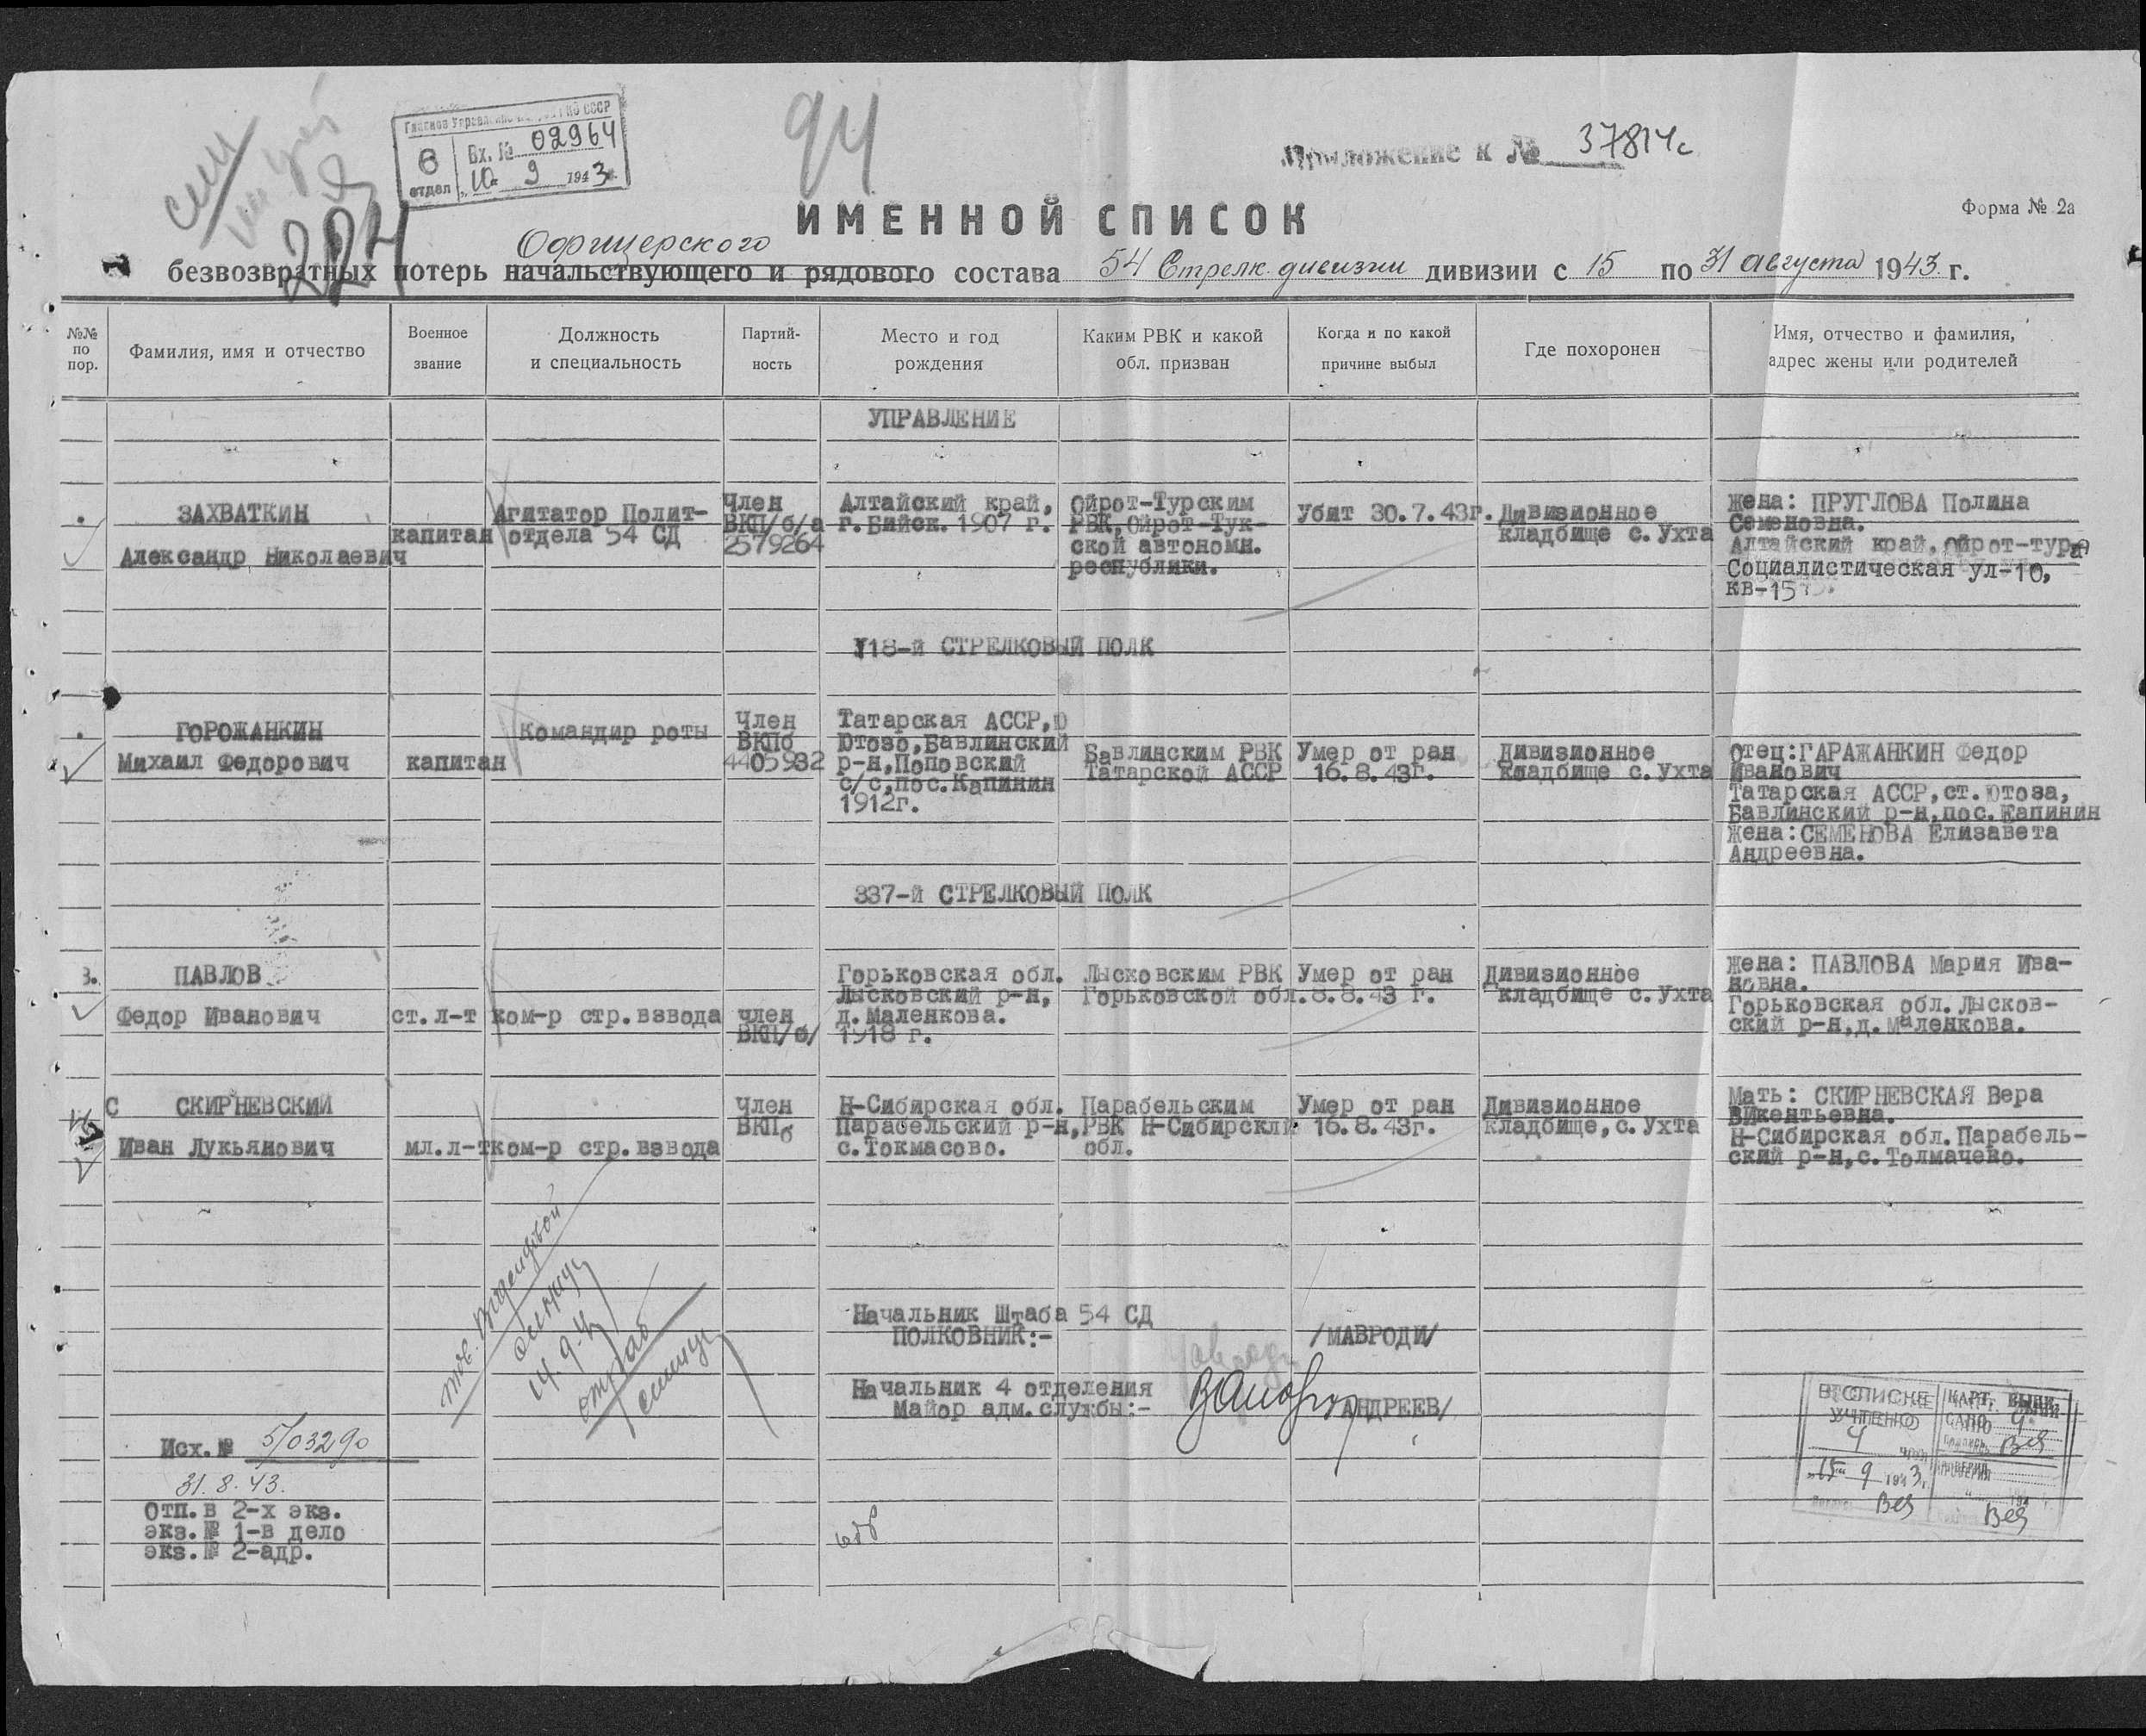 Главное Управление
6 отдел
Вх. № 02964
"10" 9 1943 г.
94
224
Приложение к № 37814с
Форма № 2а
ИМЕННОЙ СПИСОК
Офицерского
безвозвратных потерь начальствующего и рядового состава 54 Стрелк. дивизии дивизии с 15 по 31 августа 1943 г.
№№ по пор.
Фамилия, имя и отчество
Военное звание
Должность и специальность
Партий-ность
Место и год рождения
Каким РВК и какой обл. призван
Когда и по какой причине выбыл
Где похоронен
Имя, отчество и фамилия, адрес жены или родителей
УПРАВЛЕНИЕ
ЗАХВАТКИН
Александр Николаевич
капитан
Агитатор Полит-
отдела 54 СД
Член
ВКП/б/а
2579264
Алтайский край,
г.Бийск. 1907 г.
Ойрот-Турским
РВК,Ойрот-Тук-
ской автономн.
республики.
Убит 30.7.43г.
Дивизионное
кладбище с.Ухта
Жена: ПРУГЛОВА Полина
Семеновна.
Алтайский край,Ойрот-тура
Социалистическая ул-10,
кв-15
118-й СТРЕЛКОВЫЙ ПОЛК
ГОРОЖАНКИН
Михаил Федорович
капитан
Командир роты
Член
ВКПб
4405932
Татарская АССР,Ю
Ютозо,Бавлинский
р-н,Поповский
с/с,пос.Капинин
1912г.
Бавлинским РВК
Татарской АССР
Умер от ран
16.8.43г.
Дивизионное
кладбище с.Ухта
Отец:ГАРАЖАНКИН Федор
Иванович
Татарская АССР,ст.Ютоза,
Бавлинский р-н,пос.Капинин
Жена:СЕМЕНОВА Елизавета
Андреевна.
337-й СТРЕЛКОВЫЙ ПОЛК
3.
ПАВЛОВ
Федор Иванович
ст.л-т
ком-р стр.взвода
член
ВКП/б/
Горьковская обл.
Лысковский р-н,
д.Маленкова.
1918 г.
Лысковским РВК
Горьковской обл.
Умер от ран
8.8.43 г.
Дивизионное
кладбище с.Ухта
Жена: ПАВЛОВА Мария Ива-
новна.
Горьковская обл.Лысков-
ский р-н,д.Маленкова.
С СКИРНЕВСКИЙ
Иван Лукьянович
мл.л-т
ком-р стр.взвода
Член
ВКПб
Н-Сибирская обл.
Парабельский р-н,
с.Токмасово.
Парабельским
РВК Н-Сибирскли
обл.
Умер от ран
16.8.43г.
Дивизионное
кладбище,с.Ухта
Мать: СКИРНЕВСКАЯ Вера
Викентьевна.
Н-Сибирская обл.Парабель-
ский р-н,с.Толмачево.
Начальник Штаба 54 СД
ПОЛКОВНИК:- /МАВРОДИ/
Начальник 4 отделения
Майор адм.службы:- /АНДРЕЕВ/
Исх.№ 5/03290
31.8.43.
Отп.в 2-х экз.
экз.№ 1-в дело
экз.№ 2-адр.
В СПИСКЕ
УЧТЕНО
4 чел
"15" 9 1943 г.
КАРТ.